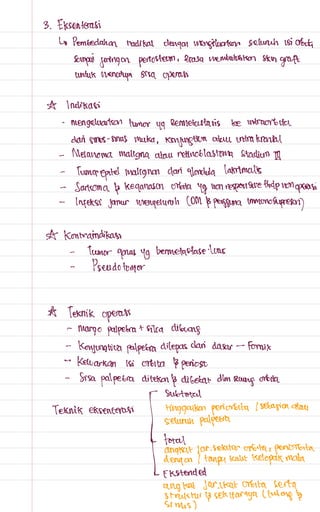 3. Eksenterasi
↳ Pembedahan radikal dengan mengeluarkan seluruh isi orbita,
sampai jaringan periosteum, biasa membutuhkan skin graft
untuk menutup sisa operasi
☆ Indikasi
- mengeluarkan tumor yg bermetastasis ke intraorbital
dari sinus-sinus muka, konjungtiva atau intrakranial
- Melanoma maligna atau retinoblastoma stadium III
- Tumor epitel malignan dari glandula lakrimalis
- Sarkoma & keganasan orbita yg non responsive thdp non operasi
- Infeksi jamur menyeluruh (DM & pengguna immunosupresan)
☆ Kontraindikasi
- Tumor ganas yg bermetastase luas
- Pseudotumor
☆ Teknik operasi
- margo palpebra + silia dibuang
- Konjungtiva palpebra dilepas dari dasar → fornix
- Keluarkan isi orbita & periost
- Sisa palpebra ditekan & dibebat dlm ruang orbita
Teknik eksenterasi
Subtotal
tinggalkan periorbita / sebagian atau
seluruh palpebra
total
angkat jar. sekitar orbita, periorbita
dengan / tanpa kulit kelopak mata
Ekstended
angkat jar. ikat orbita serta
struktur & sekitarnya (tulang &
sinus)